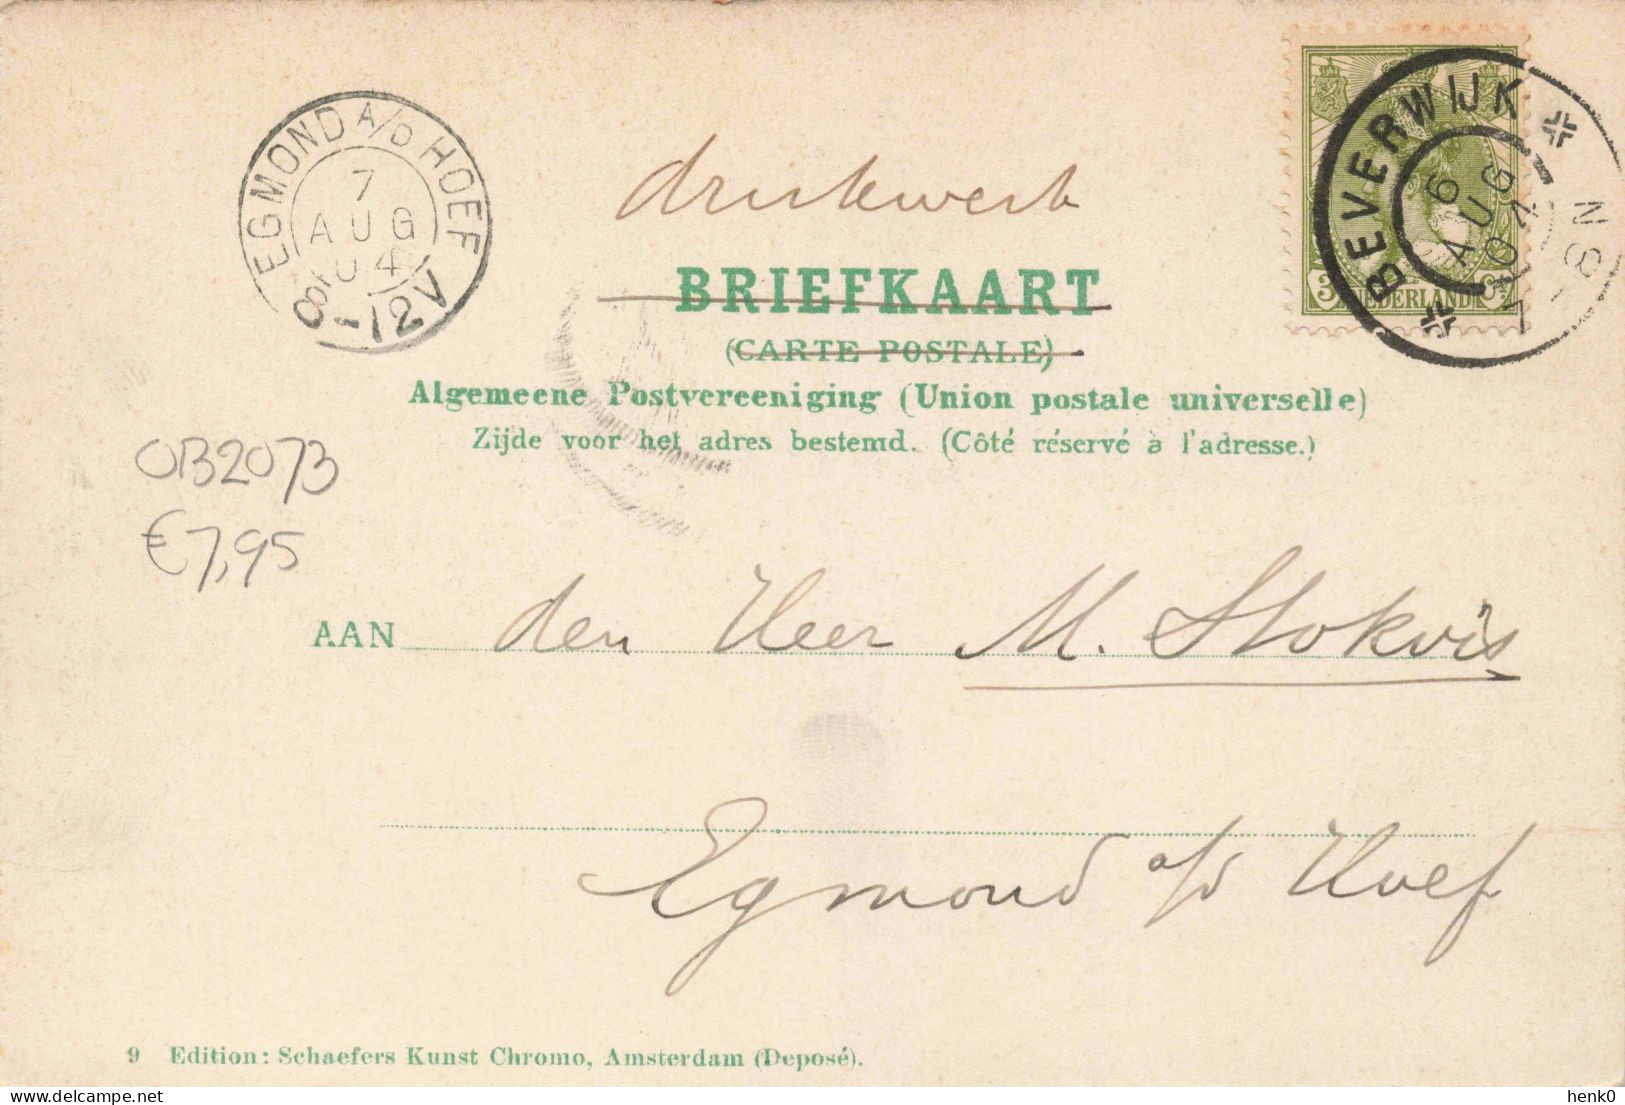 EGMOND A/D HOEF
7
AUG
04
8-12V
BEVERWIJK
6
AUG
04
7-8N
3 NEDERLAND 3
drukwerk
BRIEFKAART
(CARTE POSTALE)
Algemeene Postvereeniging (Union postale universelle)
Zijde voor het adres bestemd. (Côté réservé à l'adresse.)
OB2073
€7,95
AAN den Heer M. Stokvis
Egmond a/d Hoef
9 Edition: Schaefers Kunst Chromo, Amsterdam (Deposé).
delcampe.net
henk0